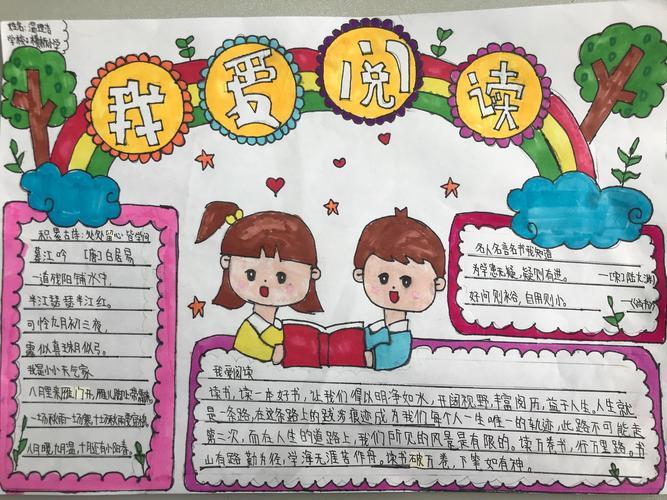 我爱阅读
积累古诗:处处留心皆学问
暮江吟 [唐]白居易
一道残阳铺水中,
半江瑟瑟半江红。
可怜九月初三夜,
露似真珠月似弓。
我是小小天气家
八月里来雁门开,雁儿脚下带霜来。
一场秋雨一场寒,十场秋雨要穿棉
八月暖,九月温,十月还有小阳春。
名人名言名书我知道
为学患无疑,疑则有进。
——[宋]陆九渊
好问则裕,自用则小。
我爱阅读
读书,读一本好书,让我们得以明净如水,开阔视野,丰富阅历,益于人生,人生就
是一条路,在这条路上的跋涉痕迹成为我们每个人一生唯一的轨迹,此路不可能走
第二次,而在人生的道路上,我们所见的风景是有限的。读万卷书,行万里路。书
山有路勤为径,学海无涯苦作舟。读书破万卷,下笔如有神。